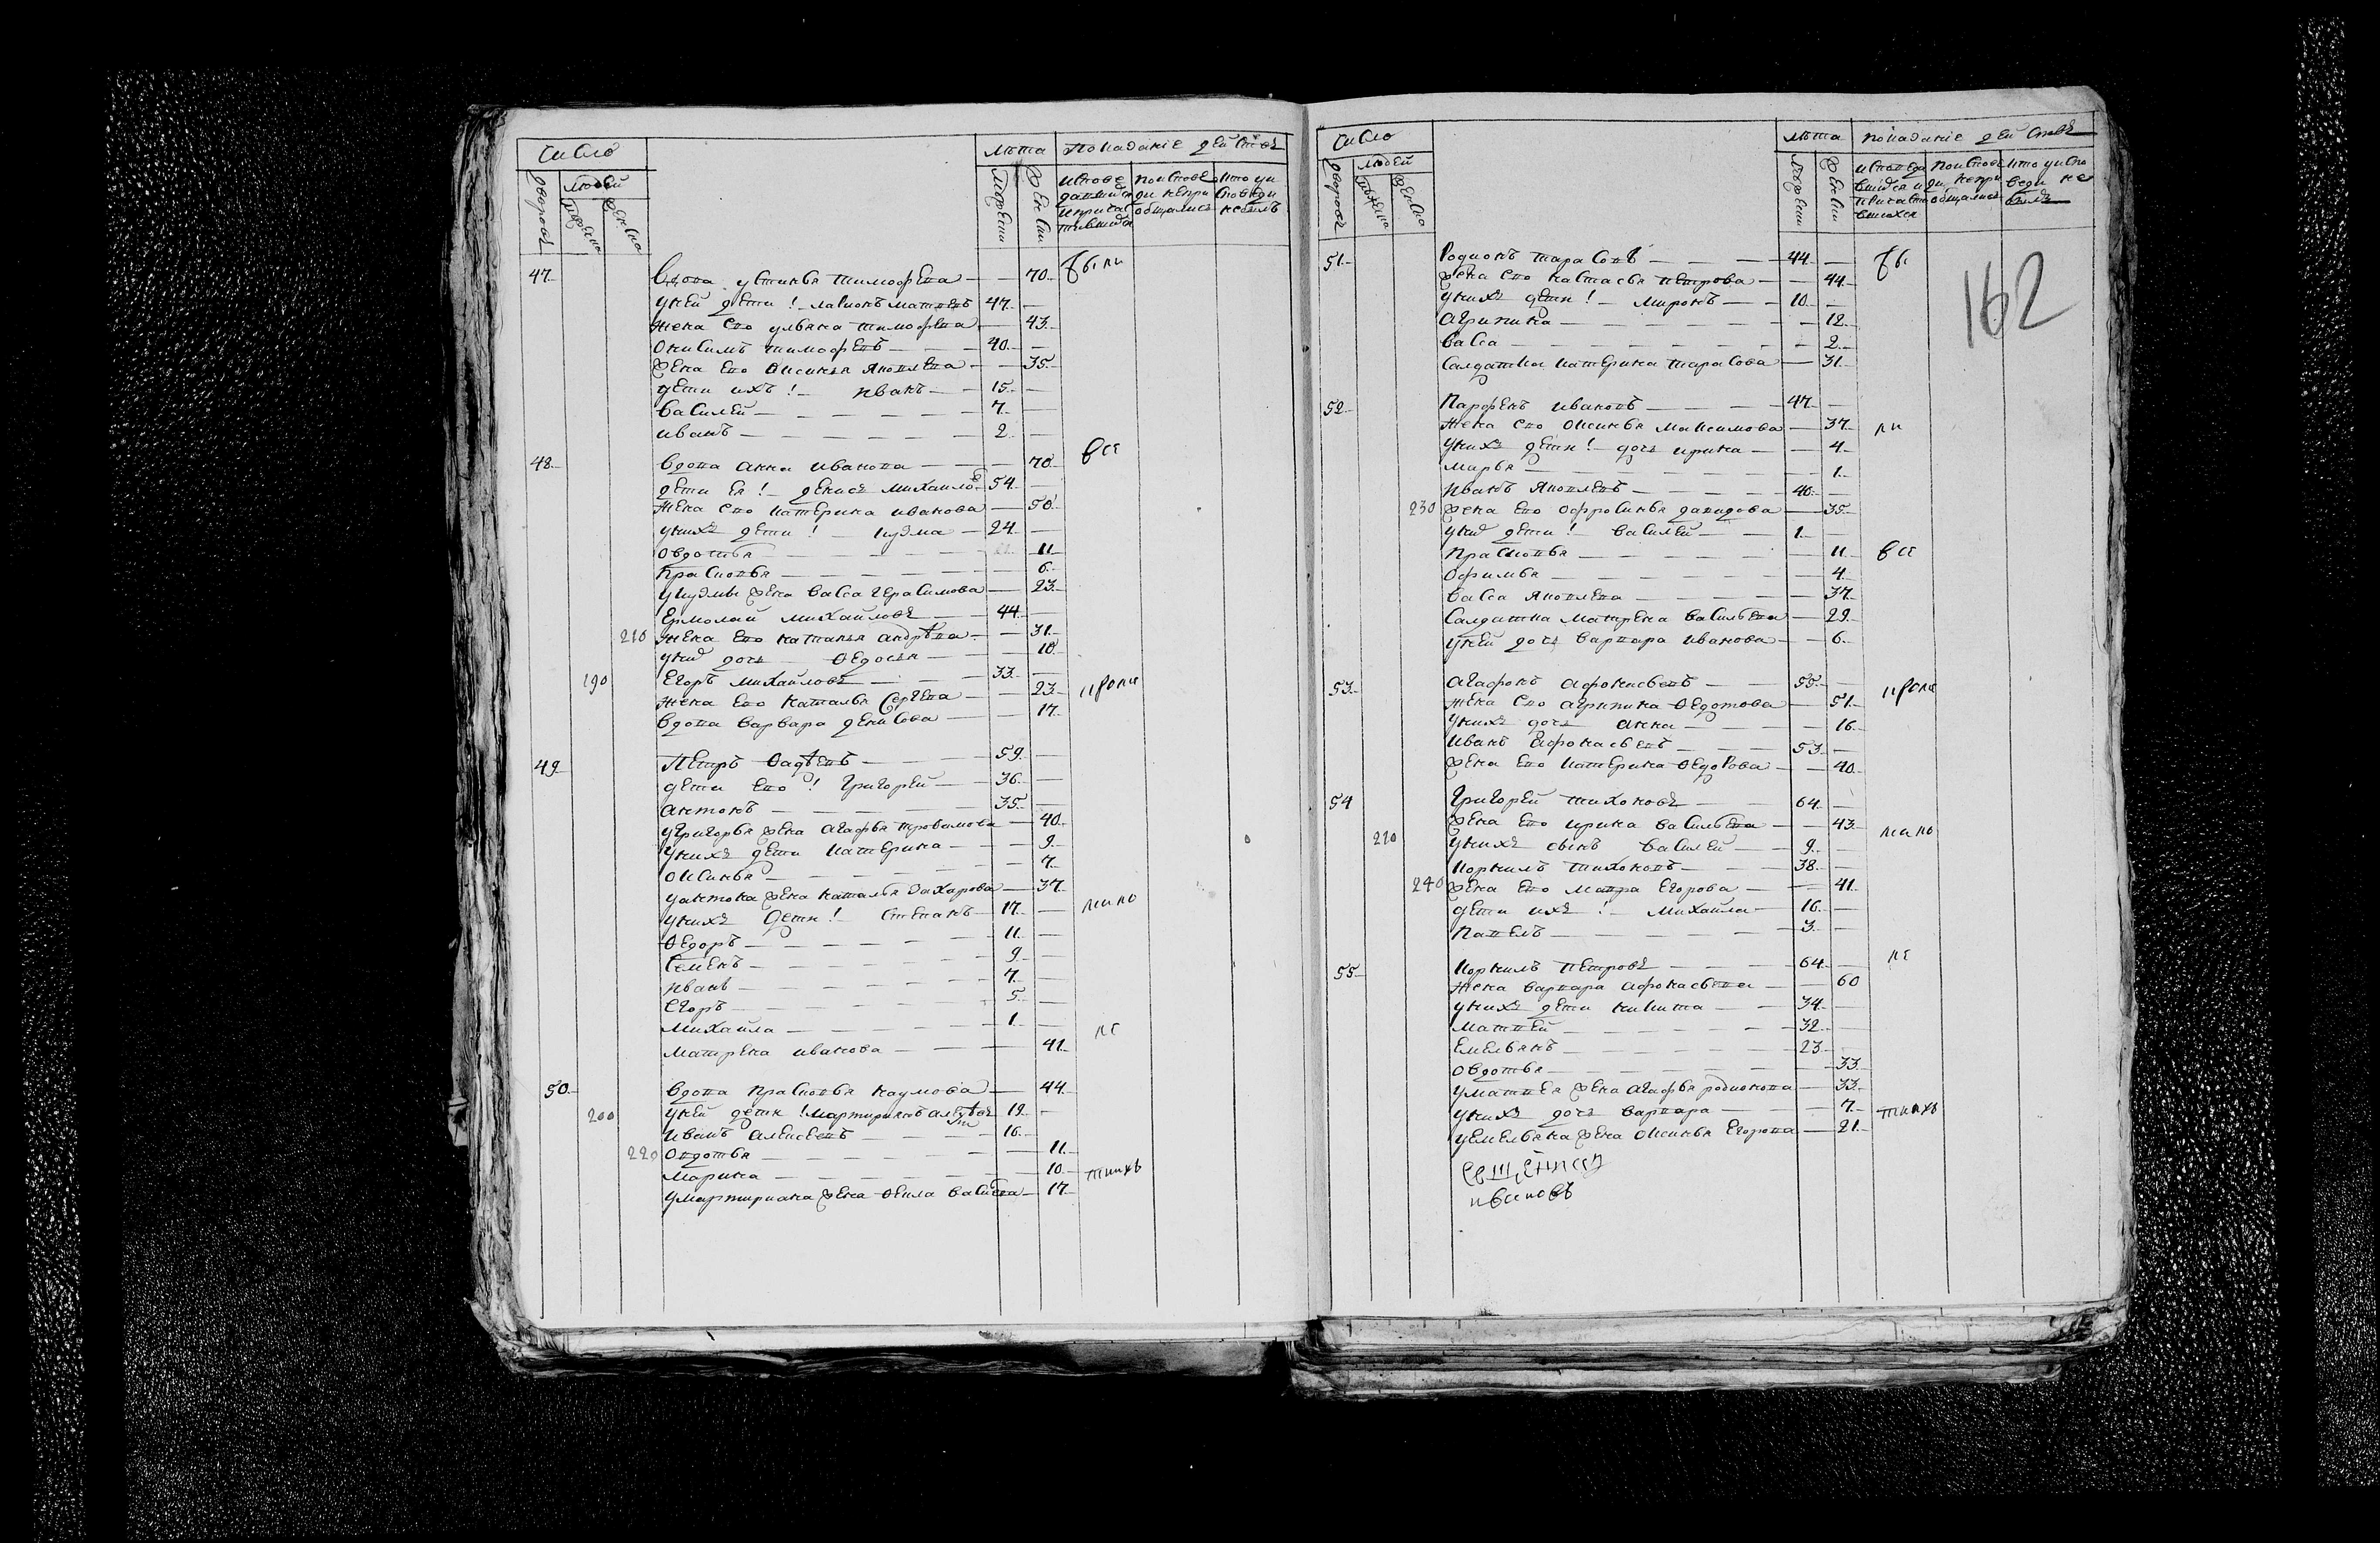 Число
Людей
Лѣта Показаніе дѣйства
дворовъ мужеска женска мужеши женски
исповедавшися и причастившися
по исповеди не при общались
кто у исповеди не былъ
47. Вдова устинья тимофева — 70. были
у ней дети! ларионъ матвевъ 47. —
жена его ульяна тимофева — 43.
онисимъ тимофевъ 40. —
жена его оксинья яковлева — 35.
дети ихъ! иванъ 15. —
василей 7. —
иванъ 2. —
48. вдова анна иванова — 70. все
дети ея! денисъ михаиловъ 54. —
жена его катерина иванова — 50.
у нихъ дети! кузма 24. —
овдотья — 11.
прасковья — 6.
у кузмы жена васса герасимова — 23.
ермолай михайловъ 44. —
210 жена его наталья андрѣва — 31.
у них дочь ѳедосья — 10.
190 Егоръ михайловъ 33. —
жена его наталья сергева — 23. ироли
вдова варвара денисова — 17.
49. Петръ фадѣевъ 59. —
дети его! григорей 36. —
антонъ 35. —
у григорья жена агафья трофимова — 40.
у нихъ дети катерина — 9.
оксинья — 7.
у антона жена наталья захарова — 37.
у нихъ дети! степанъ 17. —
ѳедоръ 11. —
семенъ 9. —
иванъ 7. —
егоръ 5. —
михайла 1. —
матрена иванова — 41. не
50. вдова прасковья наумова — 44.
200 у ней дети! мартириянъ алексѣевъ 19. —
иванъ алексеевъ 16. —
220 овдотья — 11.
марина — 10. тихъ
у мартириана жена ѳекла васильева — 17.
Число
людей
лѣта показаніе дѣйствъ
дворовъ мужеска женска мужески женски
исповедавшися и причастившихся
по исповеди не приобщались
кто у исповеди не былъ
162
51. Родионъ тарасовъ 44. — бы
жена его настасья петрова — 44.
у нихъ дети! миронъ 10. —
агрипина — 12.
васса — 2.
салдатка катерина тарасова — 31.
52. Парфенъ ивановъ 47. —
жена его оксинья максимова — 37. ли
у нихъ дети! дочь ирина — 4.
марья — 1.
иванъ яковлевъ 40. —
230 жена его офросинья давидова — 35.
у них дети! василей 1. —
прасковья — 11. все
офимья — 4.
васса яковлева — 37.
салдатка матрена васильева — 29.
у ней дочь варвара иванова — 6.
53. агафонъ афонасьевъ 55. —
жена его агрипина ѳедотова — 51.
у нихъ дочь анна — 16.
иванъ афонасьевъ 53. —
жена его катерина ѳедорова — 40.
54 григорей тихоновъ 64. —
жена его ирина васильева — 43.
220 у нихъ сынъ василей 9. —
корнилъ тихоновъ 38. —
240 жена его мавра егорова — 41.
дети ихъ! михайла 16. —
павелъ 3. —
55. корнилъ петровъ 64. — не
жена варвара афонасьева — 60
у нихъ дети никита 34. —
матвей 32. —
емельянъ 23. —
овдотья — 33.
у матвея жена агафья родионова — 33.
у нихъ дочь варвара — 7. тихъ
у емельяна жена оксинья егорова — 21.
ивановъ